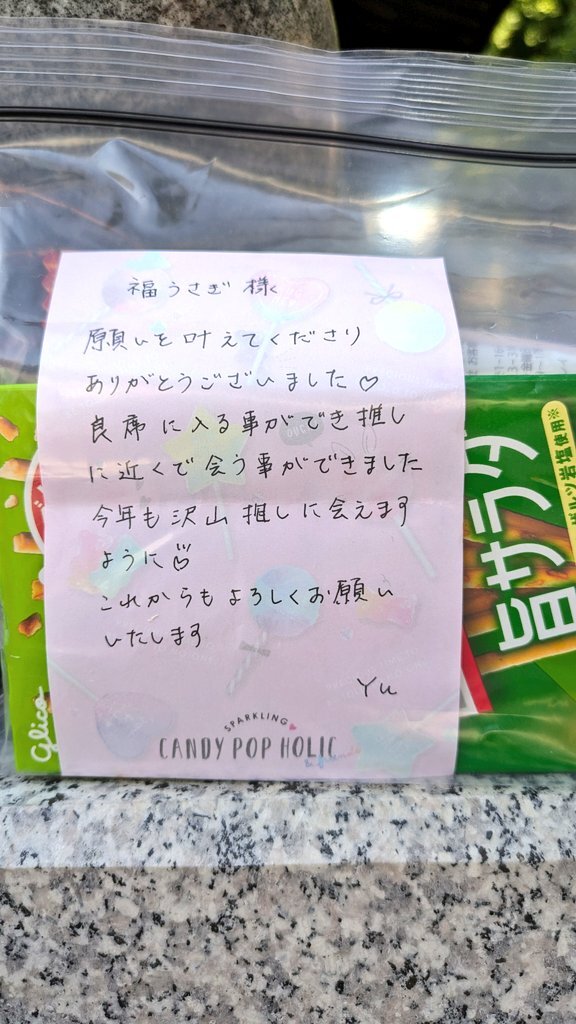 福うさぎ 様
願いを叶えてくださり
ありがとうございました♡
良席に入る事ができ推し
に近くで会う事ができました
今年も沢山推しに会えます
ように
これからもよろしくお願い
いたします
Yu
SPARKLING
CANDY POP HOLIC
glico
旨サラダ
岩塩使用※